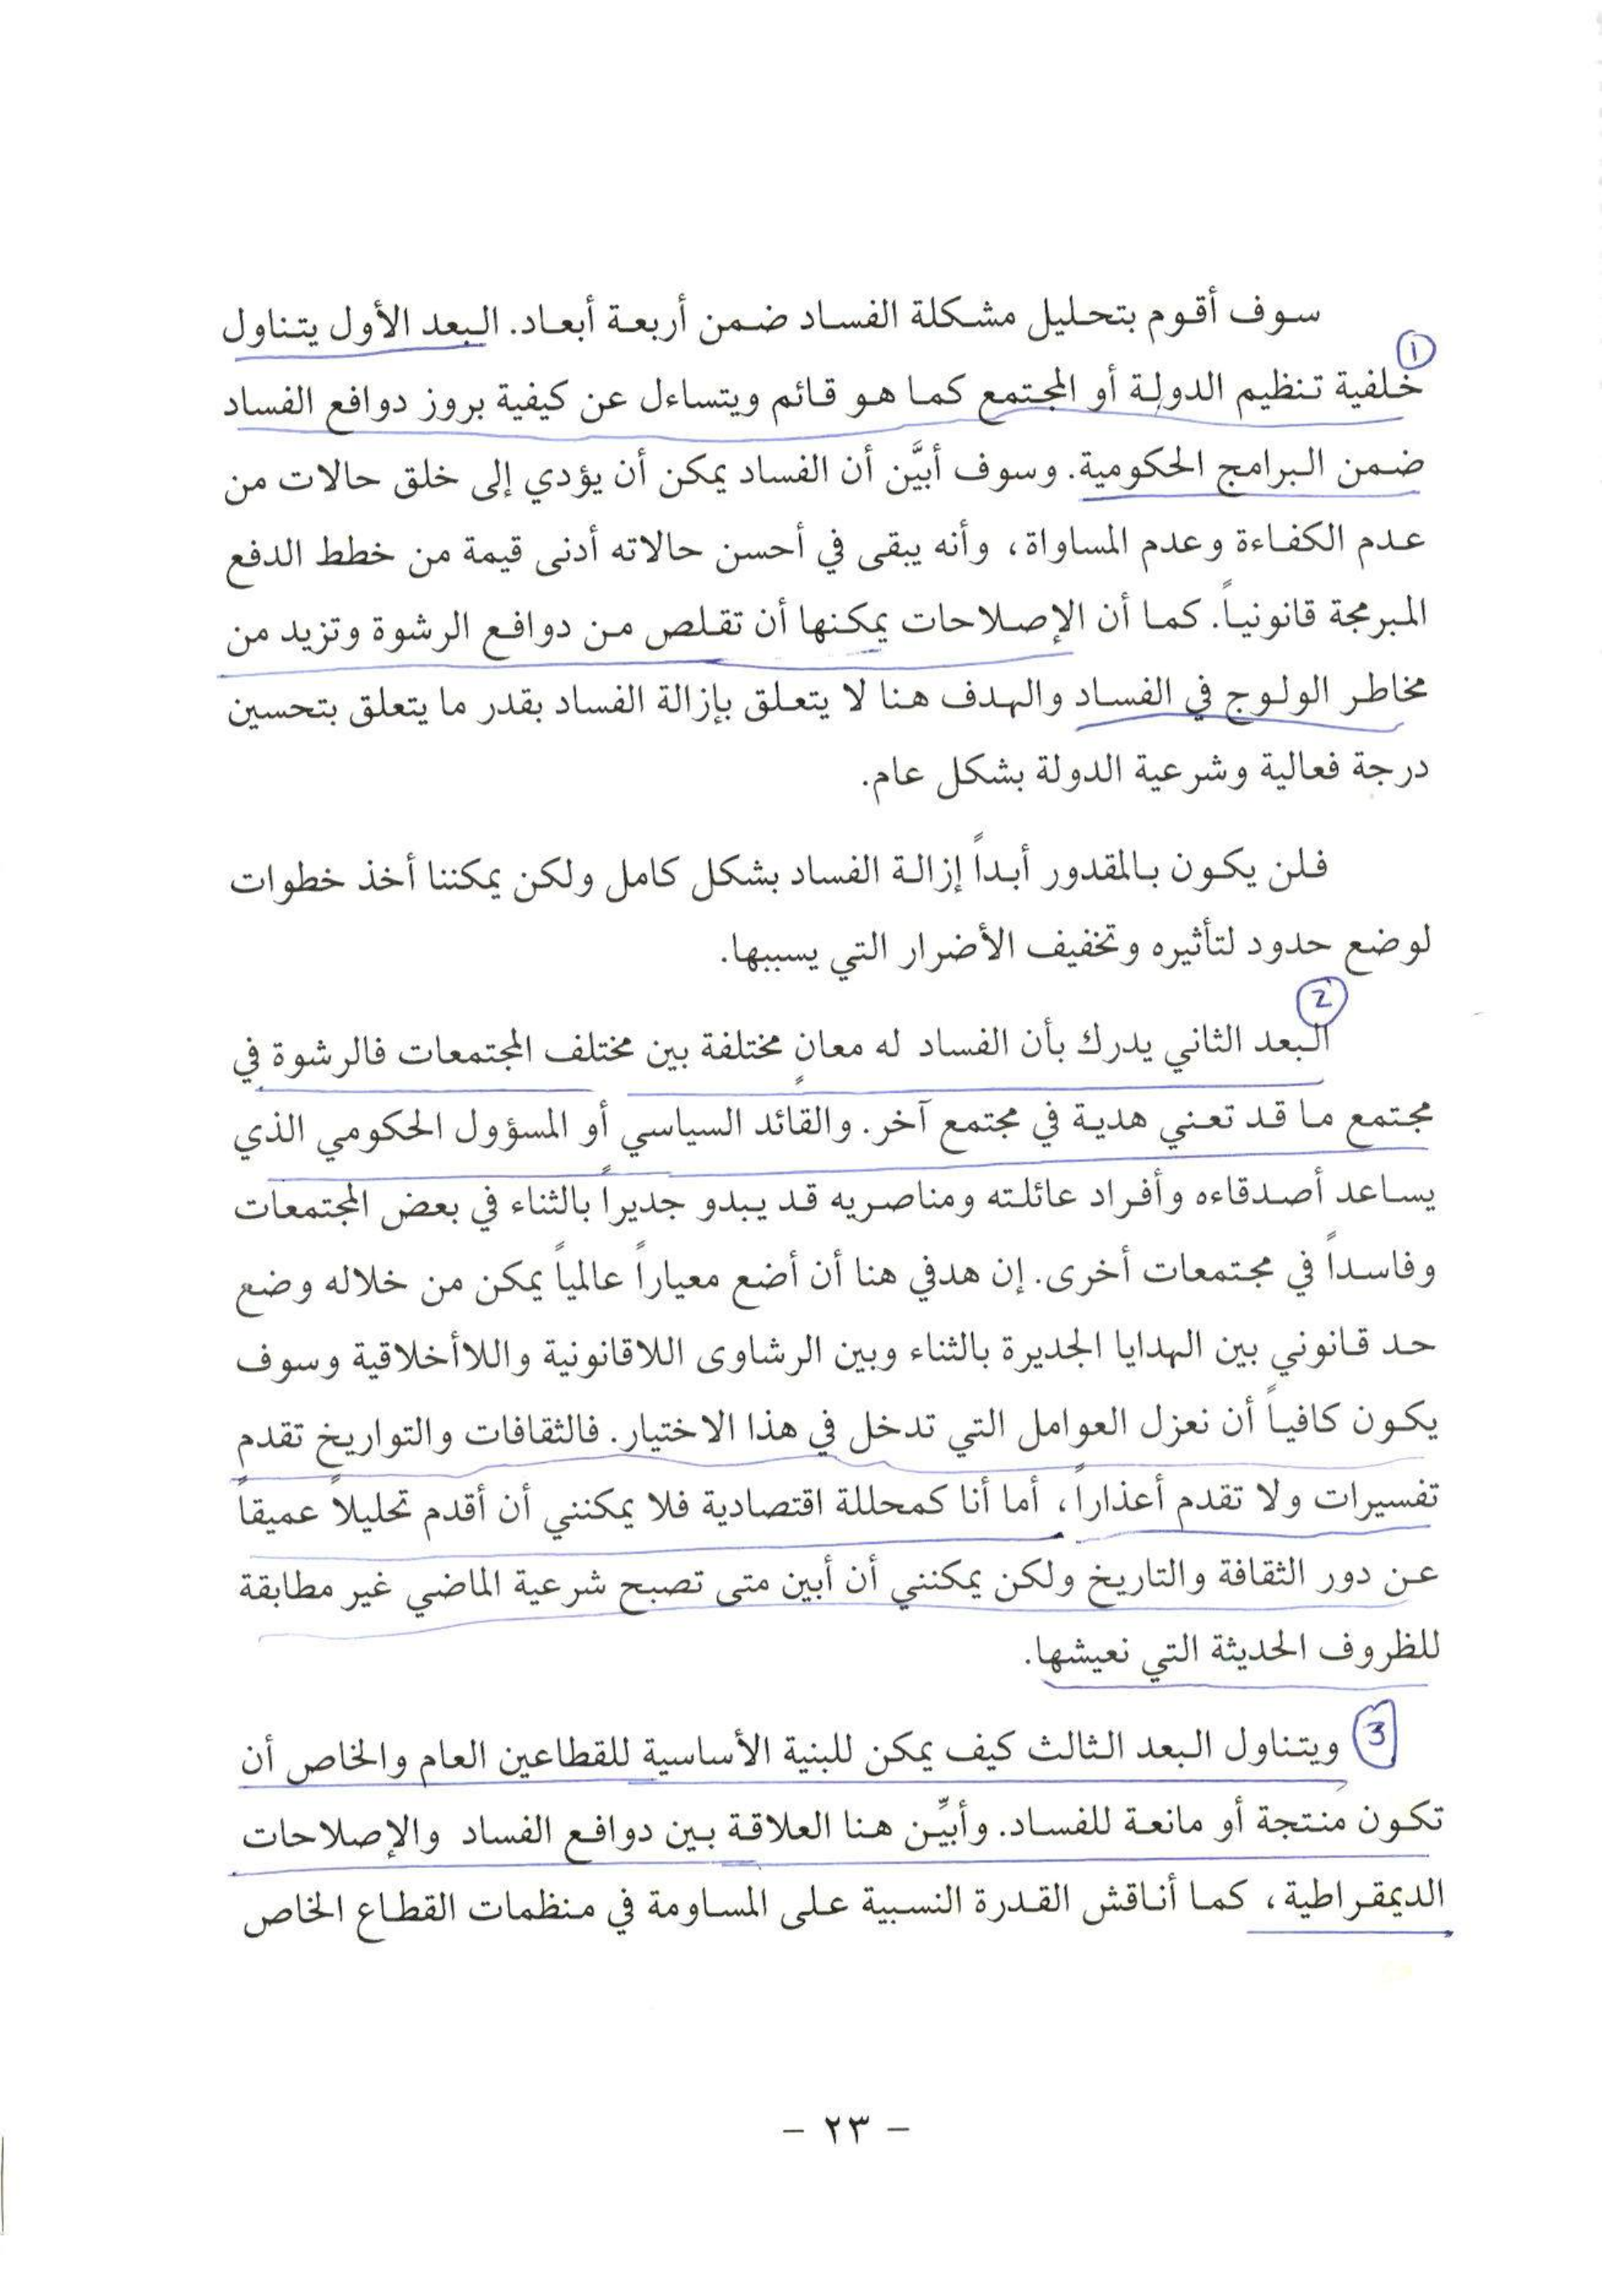 سوف أقوم بتحليل مشكلة الفساد ضمن أربعة أبعاد. البعد الأول يتناول
①
خلفية تنظيم الدولة أو المجتمع كما هو قائم ويتساءل عن كيفية بروز دوافع الفساد
ضمن البرامج الحكومية. وسوف أبيَّن أن الفساد يمكن أن يؤدي إلى خلق حالات من
عدم الكفاءة وعدم المساواة، وأنه يبقى في أحسن حالاته أدنى قيمة من خطط الدفع
المبرمجة قانونياً. كما أن الإصلاحات يمكنها أن تقلص من دوافع الرشوة وتزيد من
مخاطر الولوج في الفساد والهدف هنا لا يتعلق بإزالة الفساد بقدر ما يتعلق بتحسين
درجة فعالية وشرعية الدولة بشكل عام.
فلن يكون بالمقدور أبداً إزالة الفساد بشكل كامل ولكن يمكننا أخذ خطوات
لوضع حدود لتأثيره وتخفيف الأضرار التي يسببها.
②
البعد الثاني يدرك بأن الفساد له معانٍ مختلفة بين مختلف المجتمعات فالرشوة في
مجتمع ما قد تعني هدية في مجتمع آخر. والقائد السياسي أو المسؤول الحكومي الذي
يساعد أصدقاءه وأفراد عائلته ومناصريه قد يبدو جديراً بالثناء في بعض المجتمعات
وفاسداً في مجتمعات أخرى. إن هدفي هنا أن أضع معياراً عالمياً يمكن من خلاله وضع
حد قانوني بين الهدايا الجديرة بالثناء وبين الرشاوى اللاقانونية واللاأخلاقية وسوف
يكون كافياً أن نعزل العوامل التي تدخل في هذا الاختيار. فالثقافات والتواريخ تقدم
تفسيرات ولا تقدم أعذاراً، أما أنا كمحللة اقتصادية فلا يمكنني أن أقدم تحليلاً عميقاً
عن دور الثقافة والتاريخ ولكن يمكنني أن أبين متى تصبح شرعية الماضي غير مطابقة
للظروف الحديثة التي نعيشها.
③ ويتناول البعد الثالث كيف يمكن للبنية الأساسية للقطاعين العام والخاص أن
تكون منتجة أو مانعة للفساد. وأبيِّن هنا العلاقة بين دوافع الفساد والإصلاحات
الديمقراطية، كما أناقش القدرة النسبية على المساومة في منظمات القطاع الخاص
- ٢٣ -